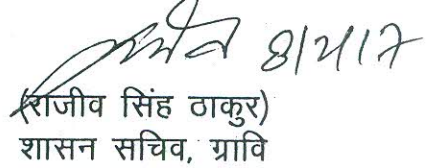 8/2/17
(राजीव सिंह ठाकुर)
शासन सचिव, ग्रावि